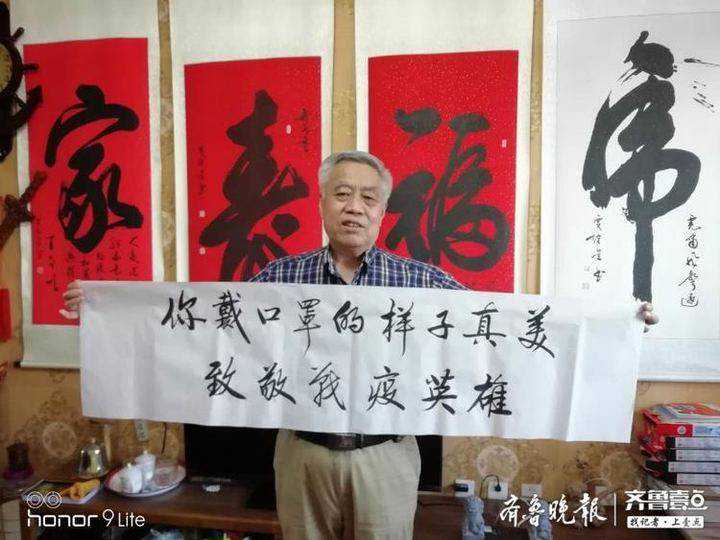 家
寿
福
虎
你戴口罩的样子真美
致敬战疫英雄
honor 9 Lite
齐鲁晚报
齐鲁壹点
找记者·上壹点